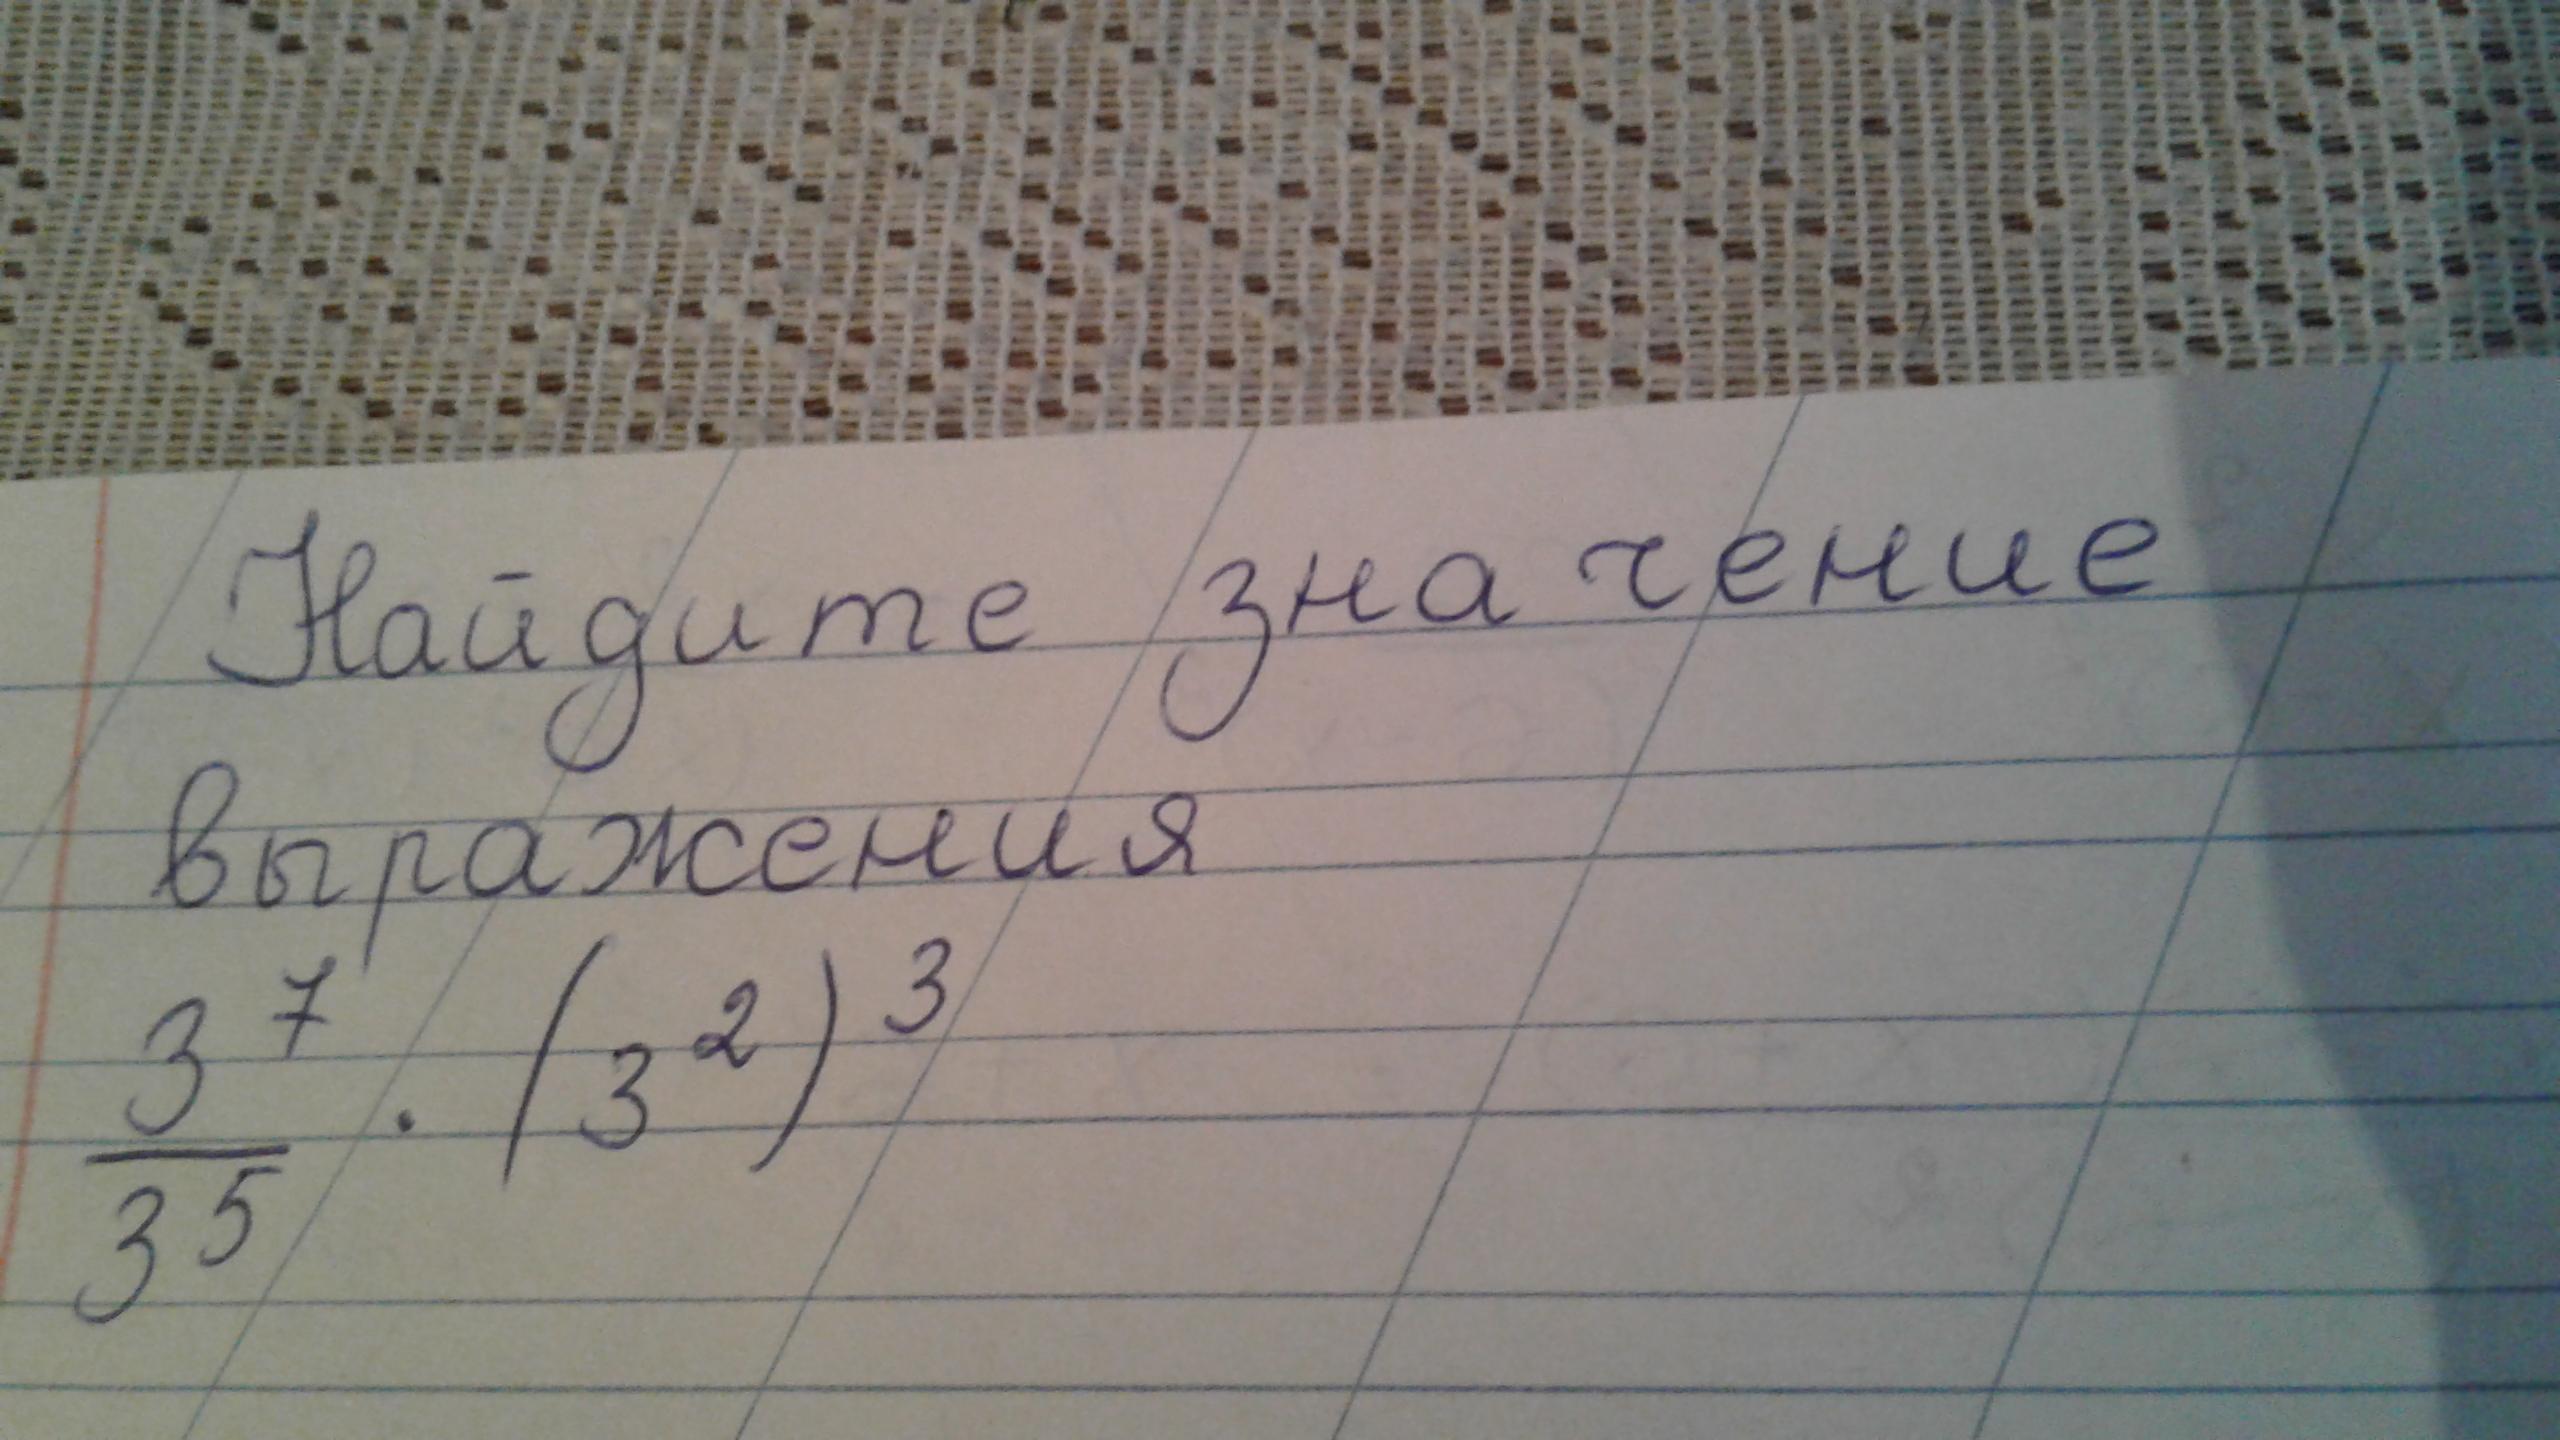 Найдите значение
выражения
3^7/3^5 · (3^2)^3